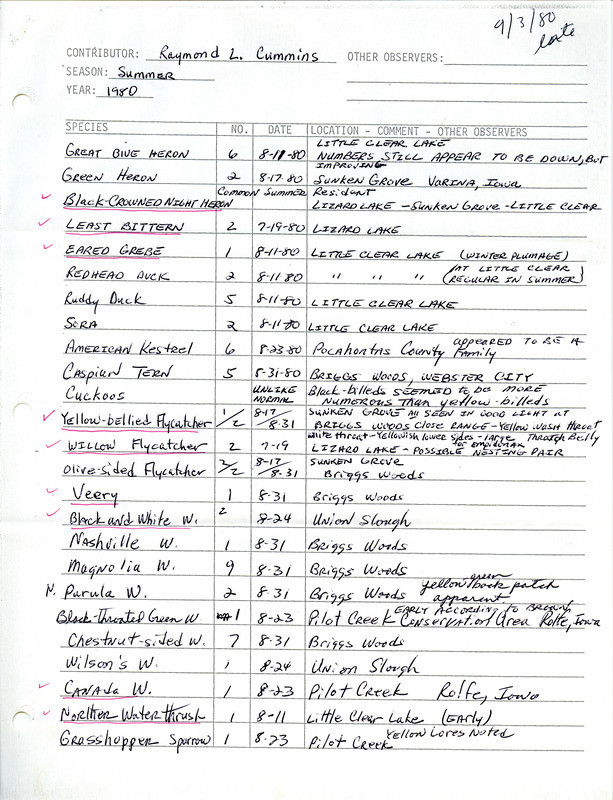 9/3/80
late
CONTRIBUTOR: Raymond L. Cummins OTHER OBSERVERS:
SEASON: Summer
YEAR: 1980
SPECIES NO. DATE LOCATION - COMMENT - OTHER OBSERVERS
LITTLE CLEAR LAKE
GREAT BlUE HERON 6 8-11-80 NUMBERS STILL APPEAR TO BE DOWN, BUT
IMPROVING
GREEN HERON 2 8-17-80 SUNKEN GROVE VARINA, IOWA
Common Summer Resident
Black-CROWNED NIGHT HERON LIZARD LAKE - SUNKEN GROVE - LITTLE CLEAR
LEAST BITTERN 2 7-19-80 LIZARD LAKE
EARED GREBE 1 8-11-80 LITTLE CLEAR LAKE (WINTER PLUMAGE)
REDHEAD DUCK 2 8-11-80 " " " (AT LITTLE CLEAR
(REGULAR IN SUMMER)
Ruddy Duck 5 8-11-80 LITTLE CLEAR LAKE
SORA 2 8-11-80 LITTLE CLEAR LAKE
AMERICAN Kestrel 6 8-23-80 Pocahontas County appeared to be A
Family
CASPIAN TERN 5 8-31-80 BRIGGS WOODS, WEBSTER CITY
Cuckoos UNLIKE NORMAL Black-billeds SEEMED to be MORE
NUMEROUS Than yellow-billeds
Yellow-bellied Flycatcher 1/2 8-17/8-31 SUNKEN GROVE All SEEN IN GOOD LIGHT AT
BRIGGS WOODS CLOSE RANGE - Yellow WASH throat
White throat - Yellowish lower sides - large Through Belly
for EMPIDONAX
WILLOW Flycatcher 2 7-19 LIZARD LAKE - POSSIBLE NESTING PAIR
Olive-sided Flycatcher 2/2 8-17/8-31 SUNKEN GROVE
Briggs Woods
Veery 1 8-31 Briggs Woods
Black and White W. 2 8-24 Union Slough
Nashville W. 1 8-31 Briggs Woods
Magnolia W. 9 8-31 Briggs Woods
N. Parula W. 2 8-31 Briggs Woods yellow green back patch
apparent
EARLY ACCORDING TO BROWN
Black-Throated Green W. 1 8-23 Pilot Creek Conservation Area Rolfe, Iowa
Chestnut-sided W. 7 8-31 Briggs Woods
Wilson's W. 1 8-24 Union Slough
CANADA W. 1 8-23 Pilot Creek Rolfe, Iowa
NORTHER Waterthrush 1 8-11 Little Clear Lake (EARLY)
Grasshopper Sparrow 1 8-23 Pilot Creek Yellow Lores Noted